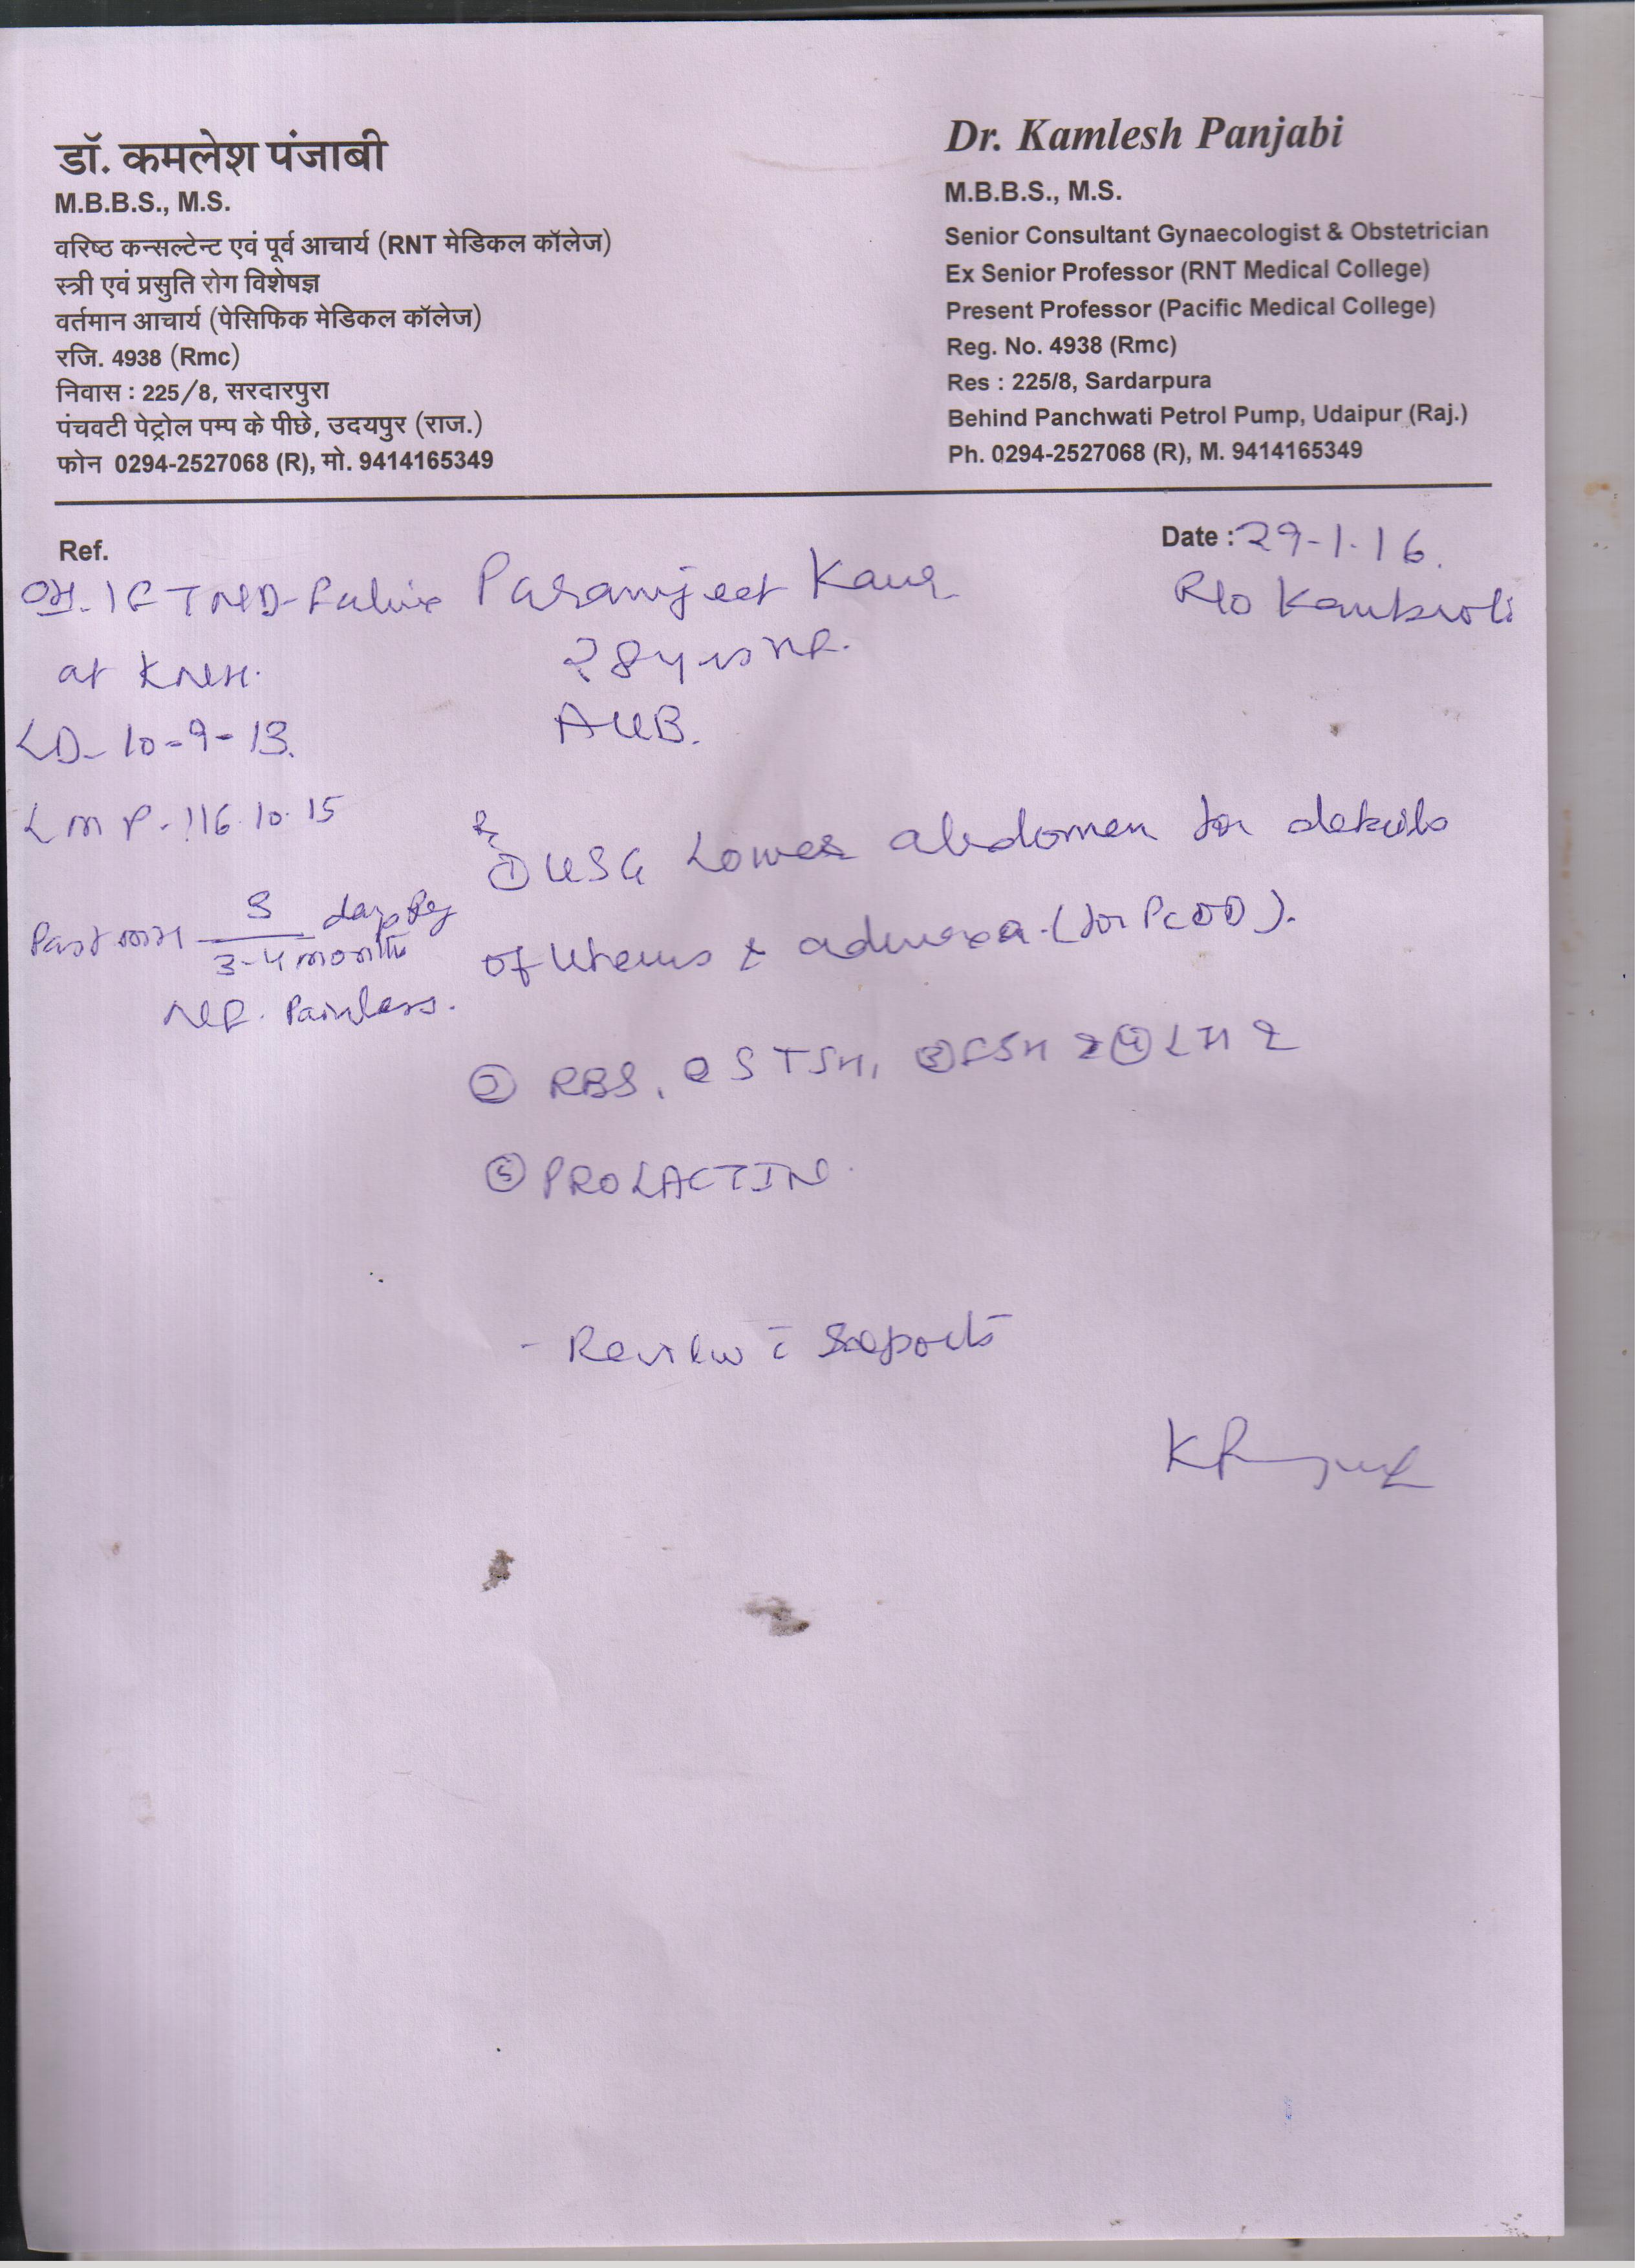 डॉ. कमलेश पंजाबी
M.B.B.S., M.S.
वरिष्ठ कन्सल्टेन्ट एवं पूर्व आचार्य (RNT मेडिकल कॉलेज)
स्त्री एवं प्रसुति रोग विशेषज्ञ
वर्तमान आचार्य (पेसिफिक मेडिकल कॉलेज)
रजि. 4938 (Rmc)
निवास : 225/8, सरदारपुरा
पंचवटी पेट्रोल पम्प के पीछे, उदयपुर (राज.)
फोन 0294-2527068 (R), मो. 9414165349
Dr. Kamlesh Panjabi
M.B.B.S., M.S.
Senior Consultant Gynaecologist & Obstetrician
Ex Senior Professor (RNT Medical College)
Present Professor (Pacific Medical College)
Reg. No. 4938 (Rmc)
Res : 225/8, Sardarpura
Behind Panchwati Petrol Pump, Udaipur (Raj.)
Ph. 0294-2527068 (R), M. 9414165349
Ref.
Date : 29-1-16.
R/o Kankroli
Paramjeet Kaur
28
AUB.
1 FTND
at
LD- 10-9-13.
LMP- 16.10.15
Past
3-4 month
Painless.
① USG Lower abdomen for details
of Uterus & adnexa. (for PCOD).
② RBS, S TSH, ③ FSH ④ LH
⑤ PROLACTIN
- Review c̄ reports